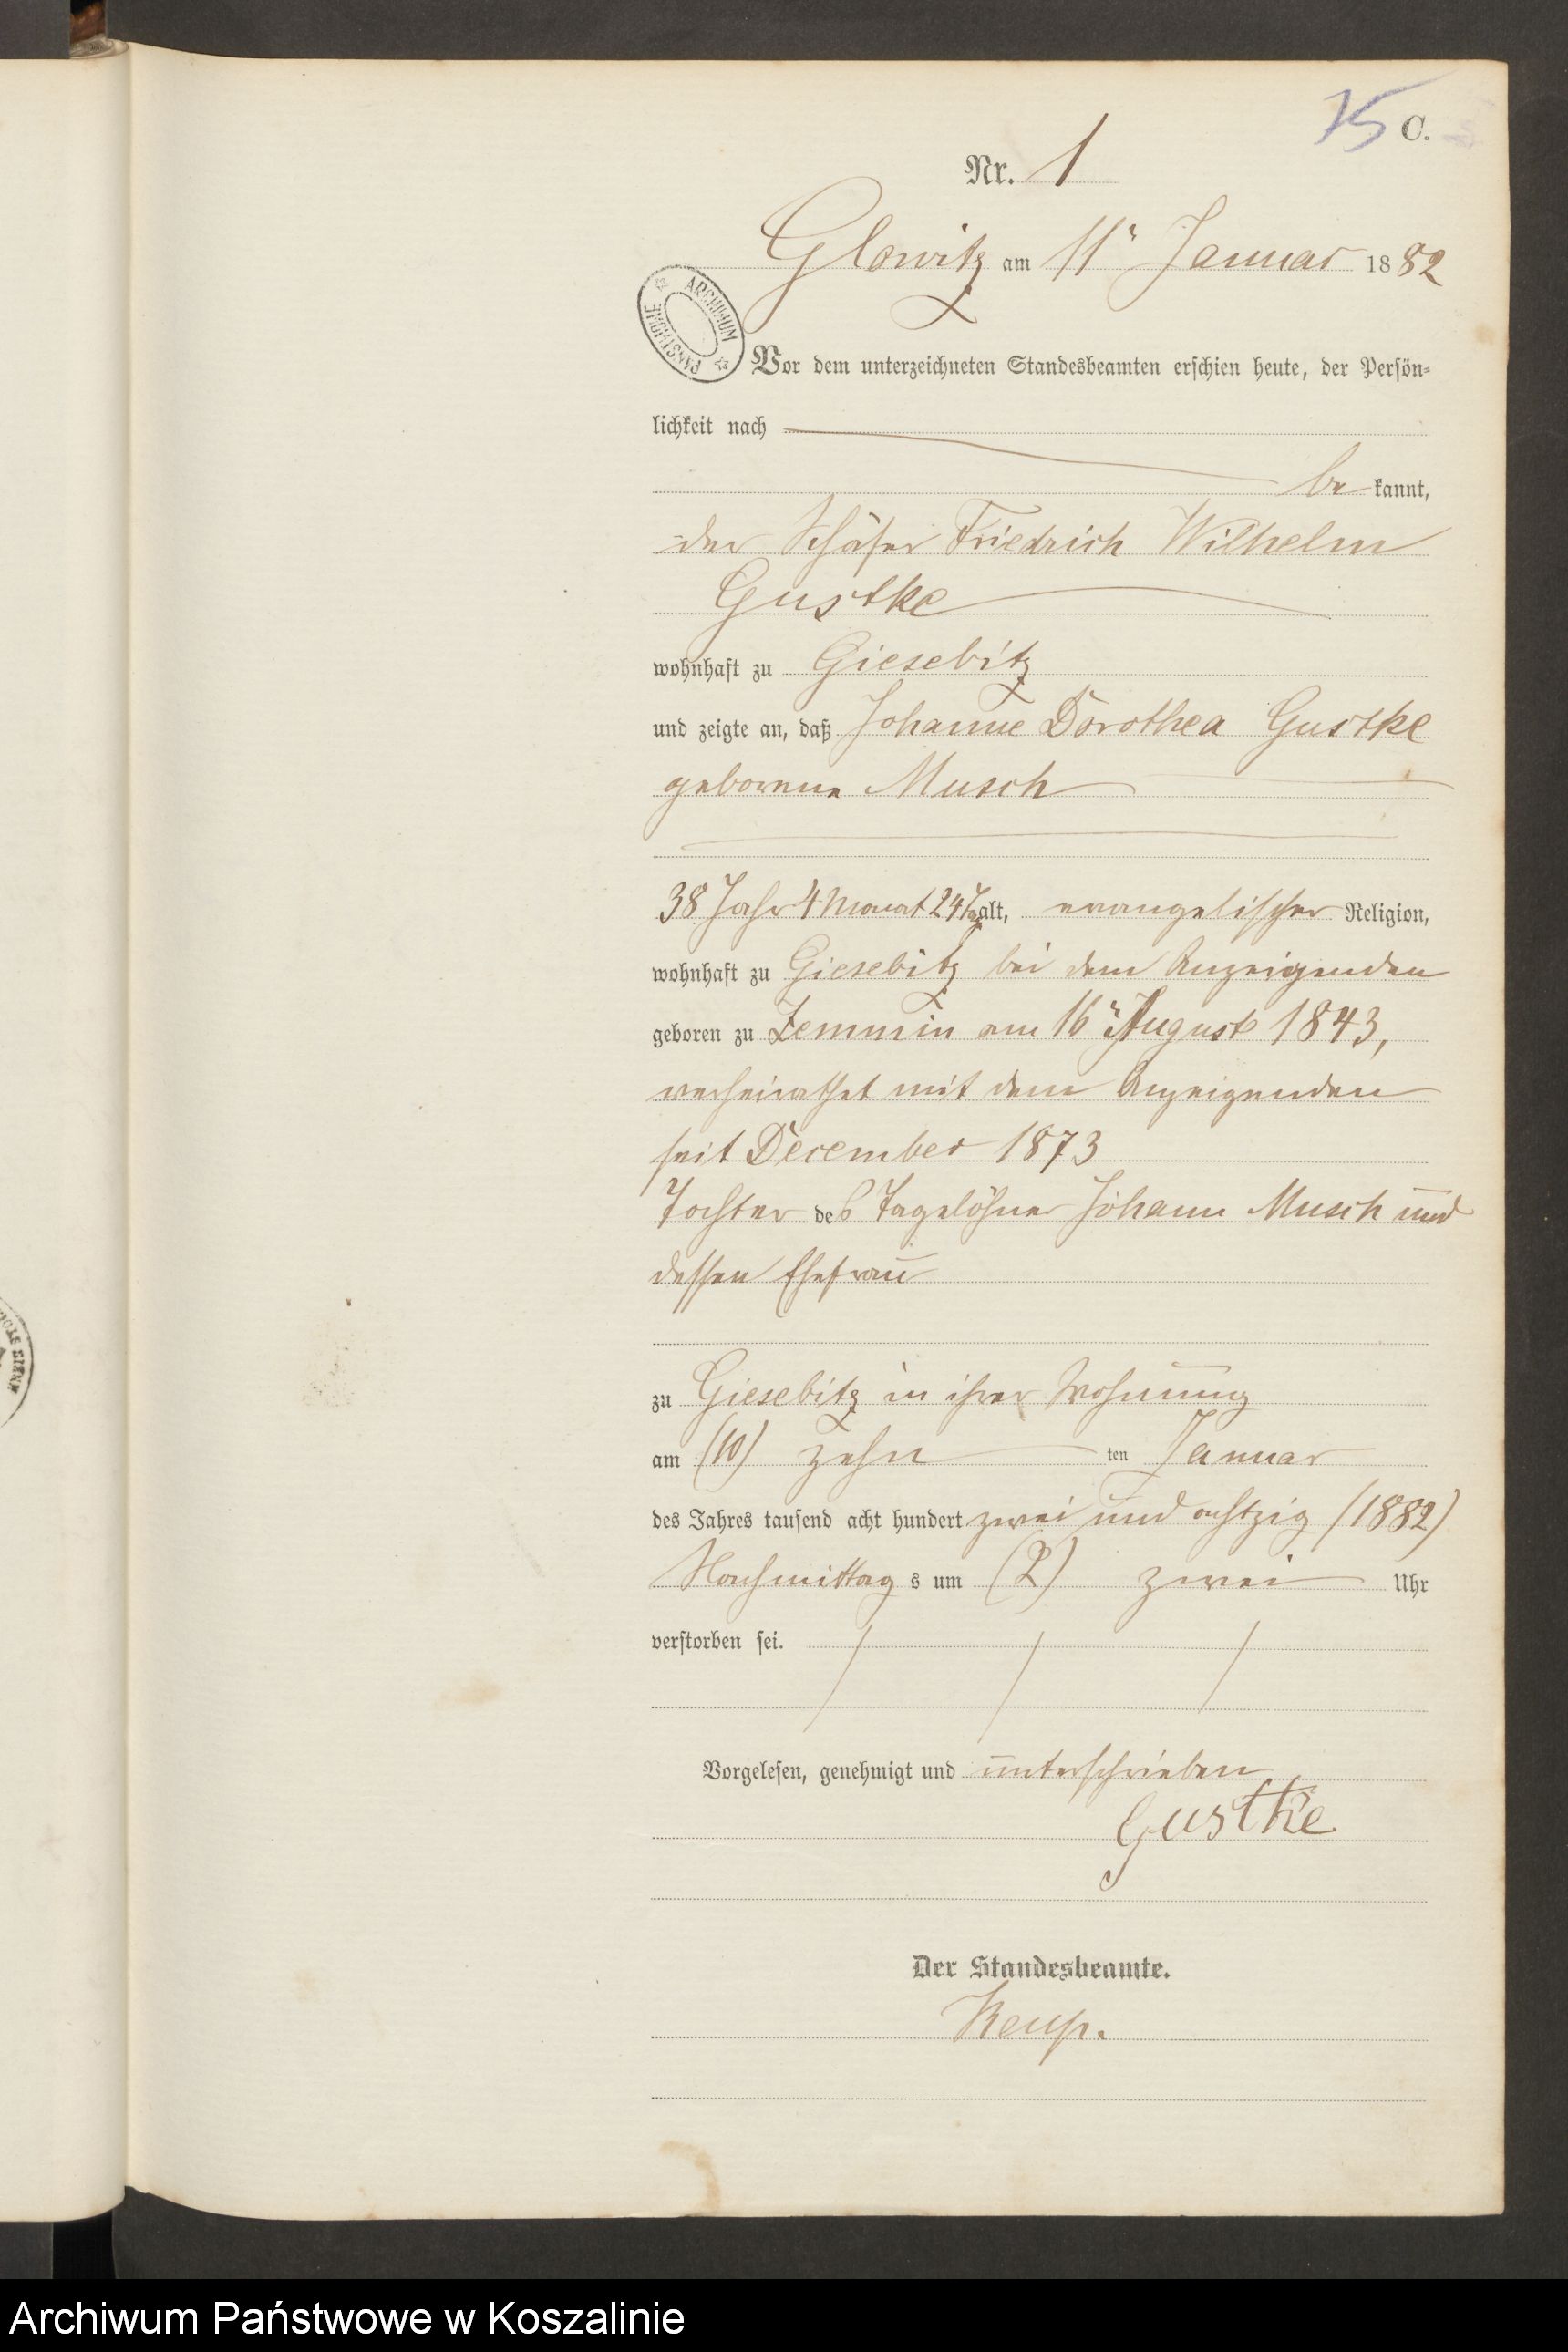 75 C.
Nr. 1
Glowitz am 11" Januar 1882
ARCHIWUM PAŃSTWOWE
Vor dem unterzeichneten Standesbeamten erschien heute, der Persön-
lichkeit nach
be kannt,
der Schäfer Friedrich Wilhelm
Gustke
wohnhaft zu Giesebitz
und zeigte an, daß Johanne Dorothea Gustke
geborene Musch
38 Jahr 4 Monat 24 Tag alt, evangelischer Religion,
wohnhaft zu Giesebitz bei dem Anzeigenden
geboren zu Zemmin am 16" August 1843,
verheirathet mit dem Anzeigenden
seit December 1873
Tochter des Tagelöhner Johann Musch und
dessen Ehefrau
zu Giesebitz in ihrer Wohnung
am (10) zehn ten Januar
des Jahres tausend acht hundert zwei und achtzig (1882)
Nachmittag s um (2) zwei Uhr
verstorben sei.
Vorgelesen, genehmigt und unterschrieben
Gustke
Der Standesbeamte.
Archiwum Państwowe w Koszalinie